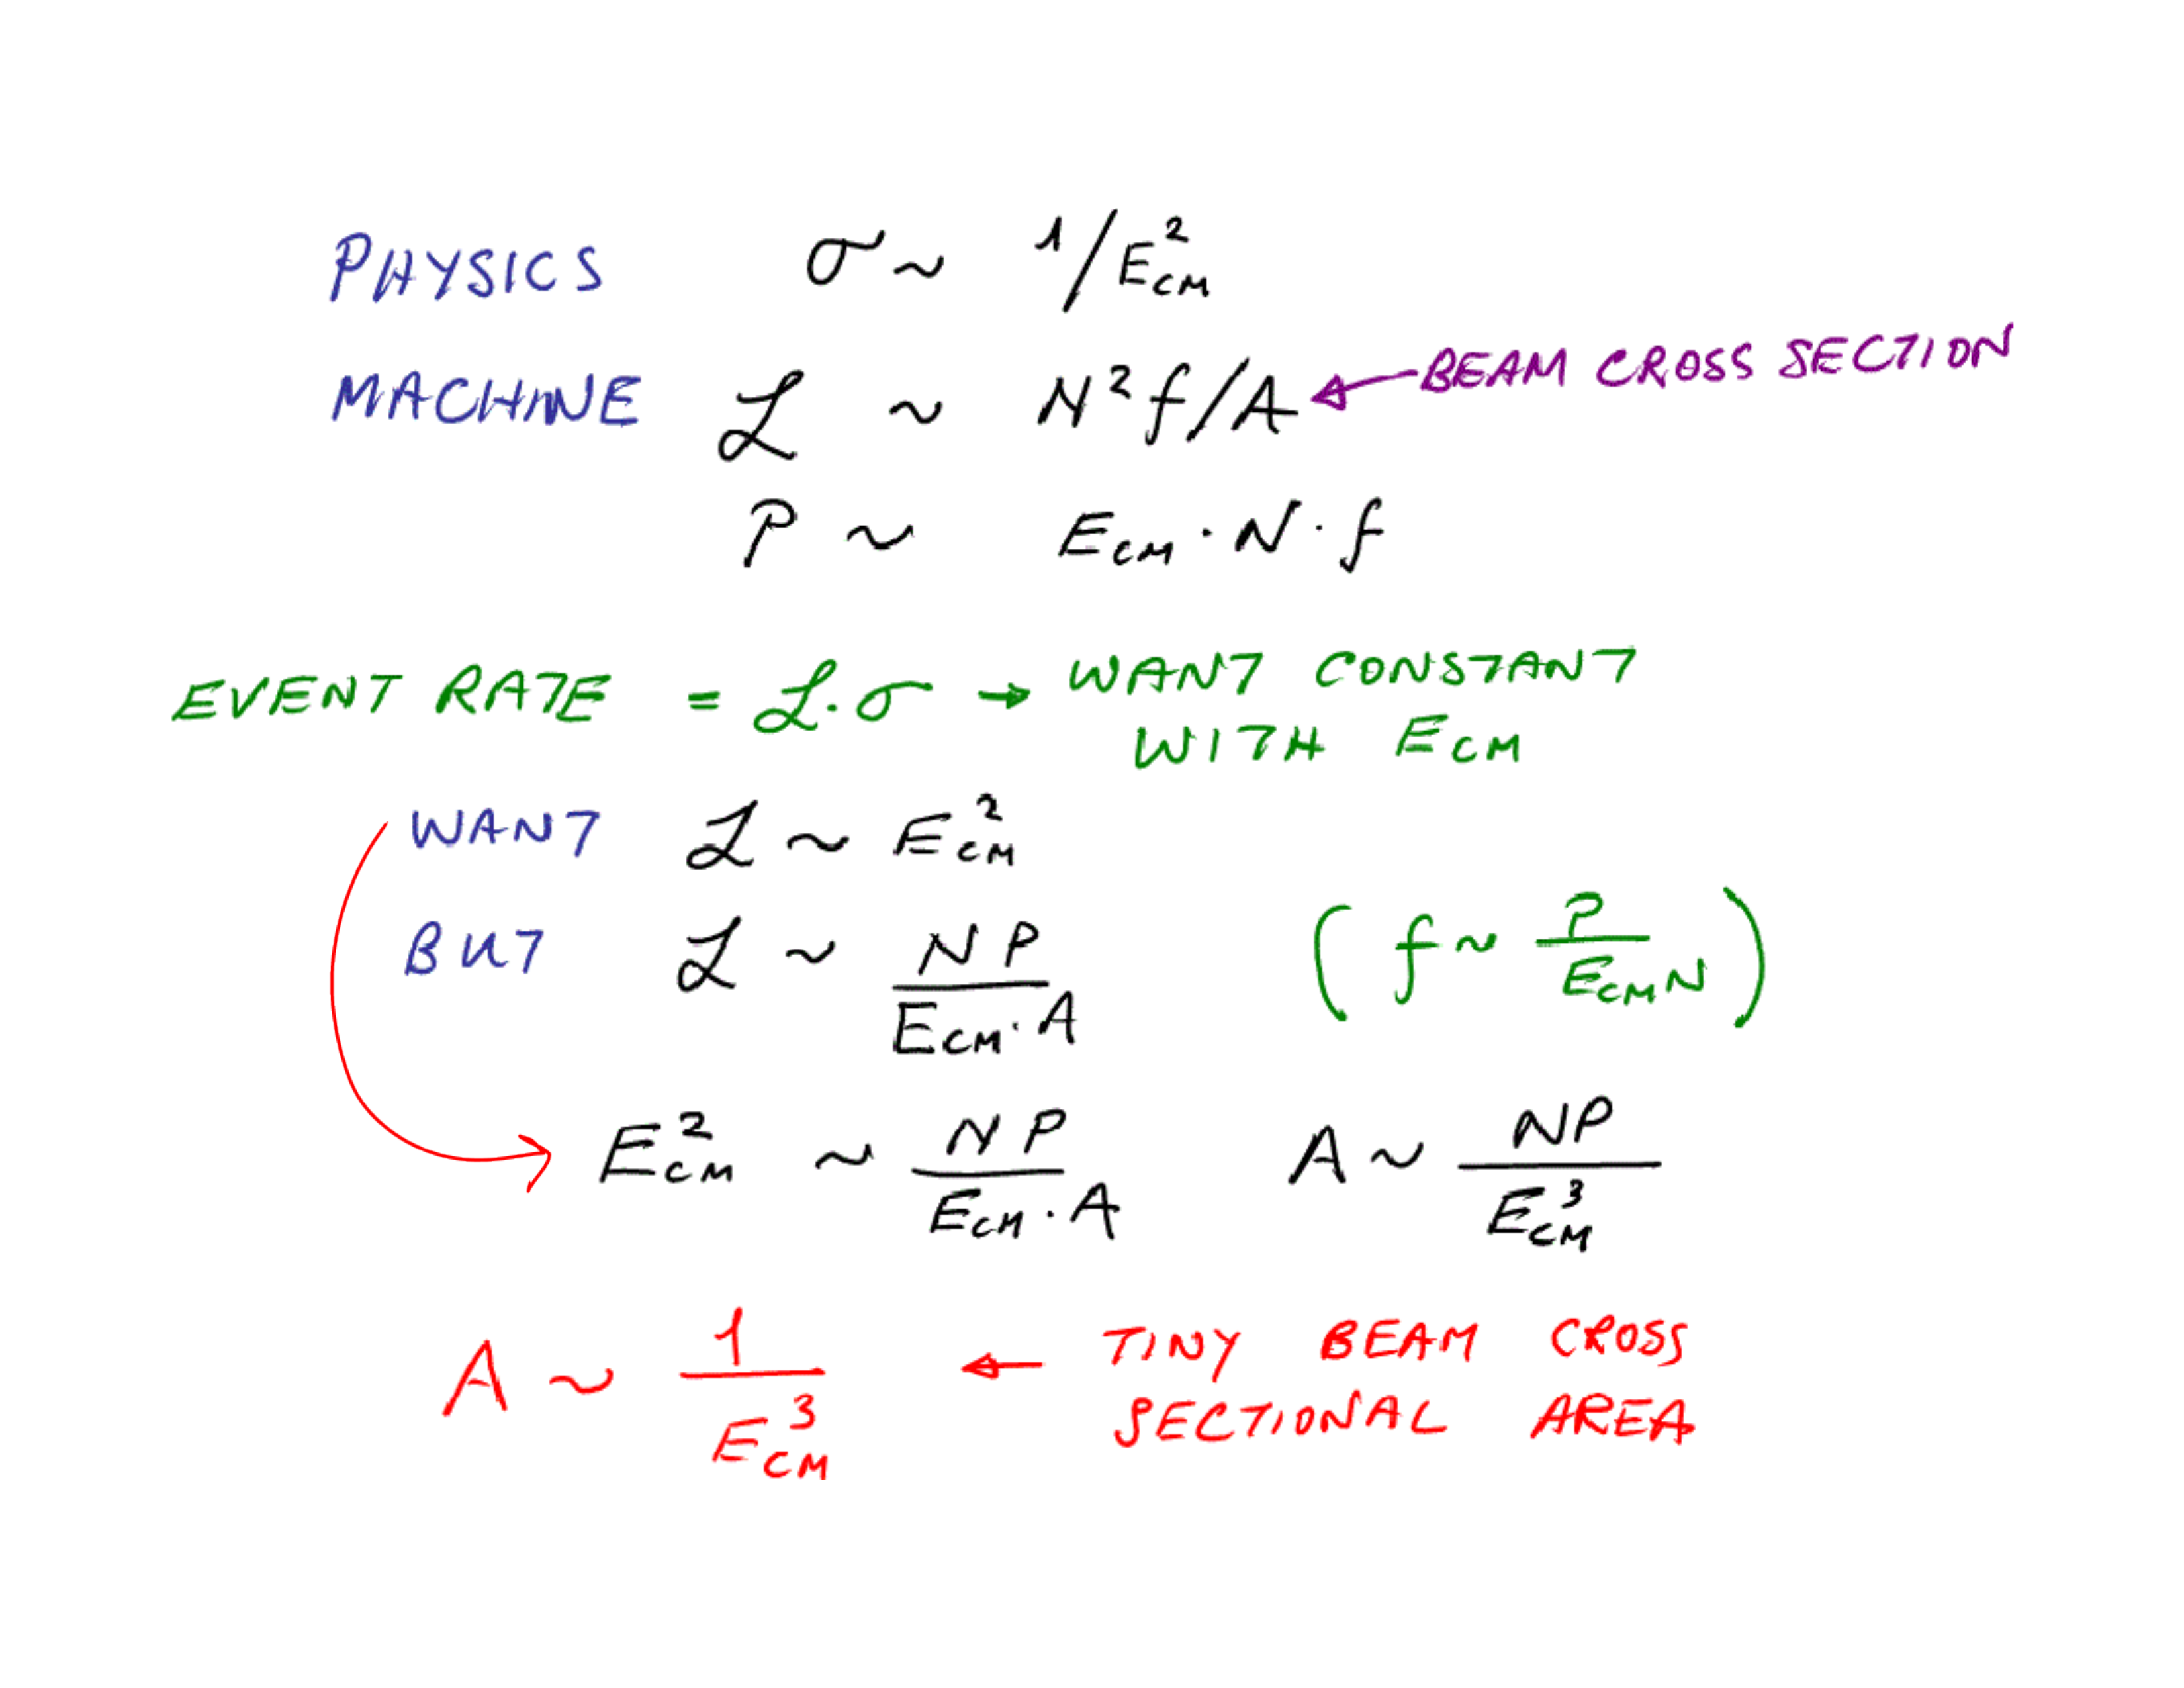 PHYSICS σ ~ 1/E²CM
MACHINE ℒ ~ N²f/A ← BEAM CROSS SECTION
P ~ ECM · N · f
EVENT RATE = ℒ·σ → WANT CONSTANT
WITH ECM
WANT ℒ ~ E²CM
BUT ℒ ~ NP / ECM·A (f ~ P / ECM N)
E²CM ~ NP / ECM·A A ~ NP / E³CM
A ~ 1 / E³CM ← TINY BEAM CROSS
SECTIONAL AREA